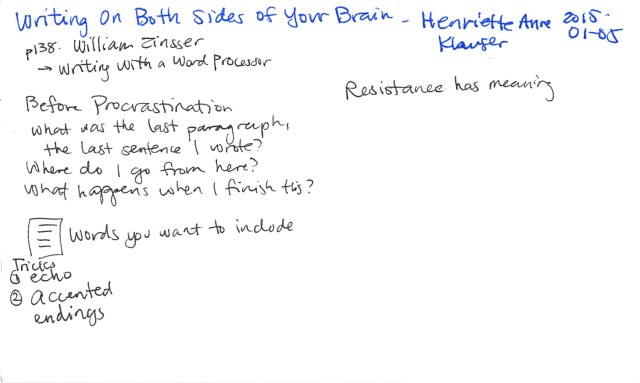 Writing On Both Sides of Your Brain - Henriette Anne Klauser 2015-01-05
p138. William Zinsser
→ Writing with a Word Processor
Resistance has meaning
Before Procrastination
What was the last paragraph,
the last sentence I wrote?
Where do I go from here?
What happens when I finish this?
Words you want to include
Tricks
① echo
② accented
endings